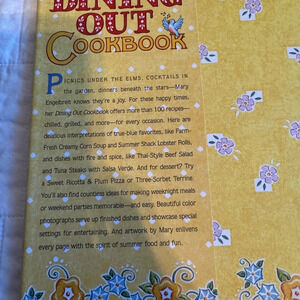 DINING
OUT
COOKBOOK
PICNICS UNDER THE ELMS, COCKTAILS IN
the garden, dinners beneath the stars—Mary
Engelbreit knows they're a joy. For these happy times,
her Dining Out Cookbook offers more than 100 recipes—
chilled, grilled, and more—for every occasion. Here are
delicious interpretations of true-blue favorites, like Farm-
Fresh Creamy Corn Soup and Summer Shack Lobster Rolls,
and dishes with fire and spice, like Thai-Style Beef Salad
and Tuna Steaks with Salsa Verde. And for dessert? Try
a Sweet Ricotta & Plum Pizza or Three-Sorbet Terrine.
You'll also find countless ideas for making weeknight meals
or weekend parties memorable—and easy. Beautiful color
photographs serve up finished dishes and showcase special
settings for entertaining. And artwork by Mary enlivens
every page with the spirit of summer food and fun.